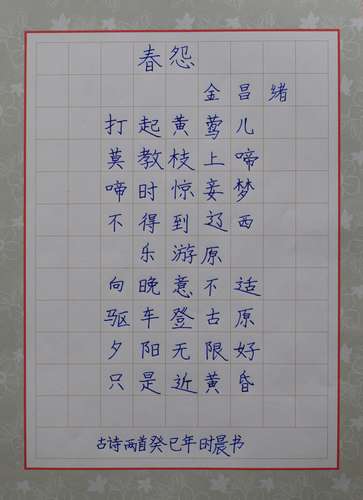 春怨
金昌绪
打起黄莺儿
莫教枝上啼
啼时惊妾梦
不得到辽西
乐游原
向晚意不适
驱车登古原
夕阳无限好
只是近黄昏
古诗两首癸巳年时晨书